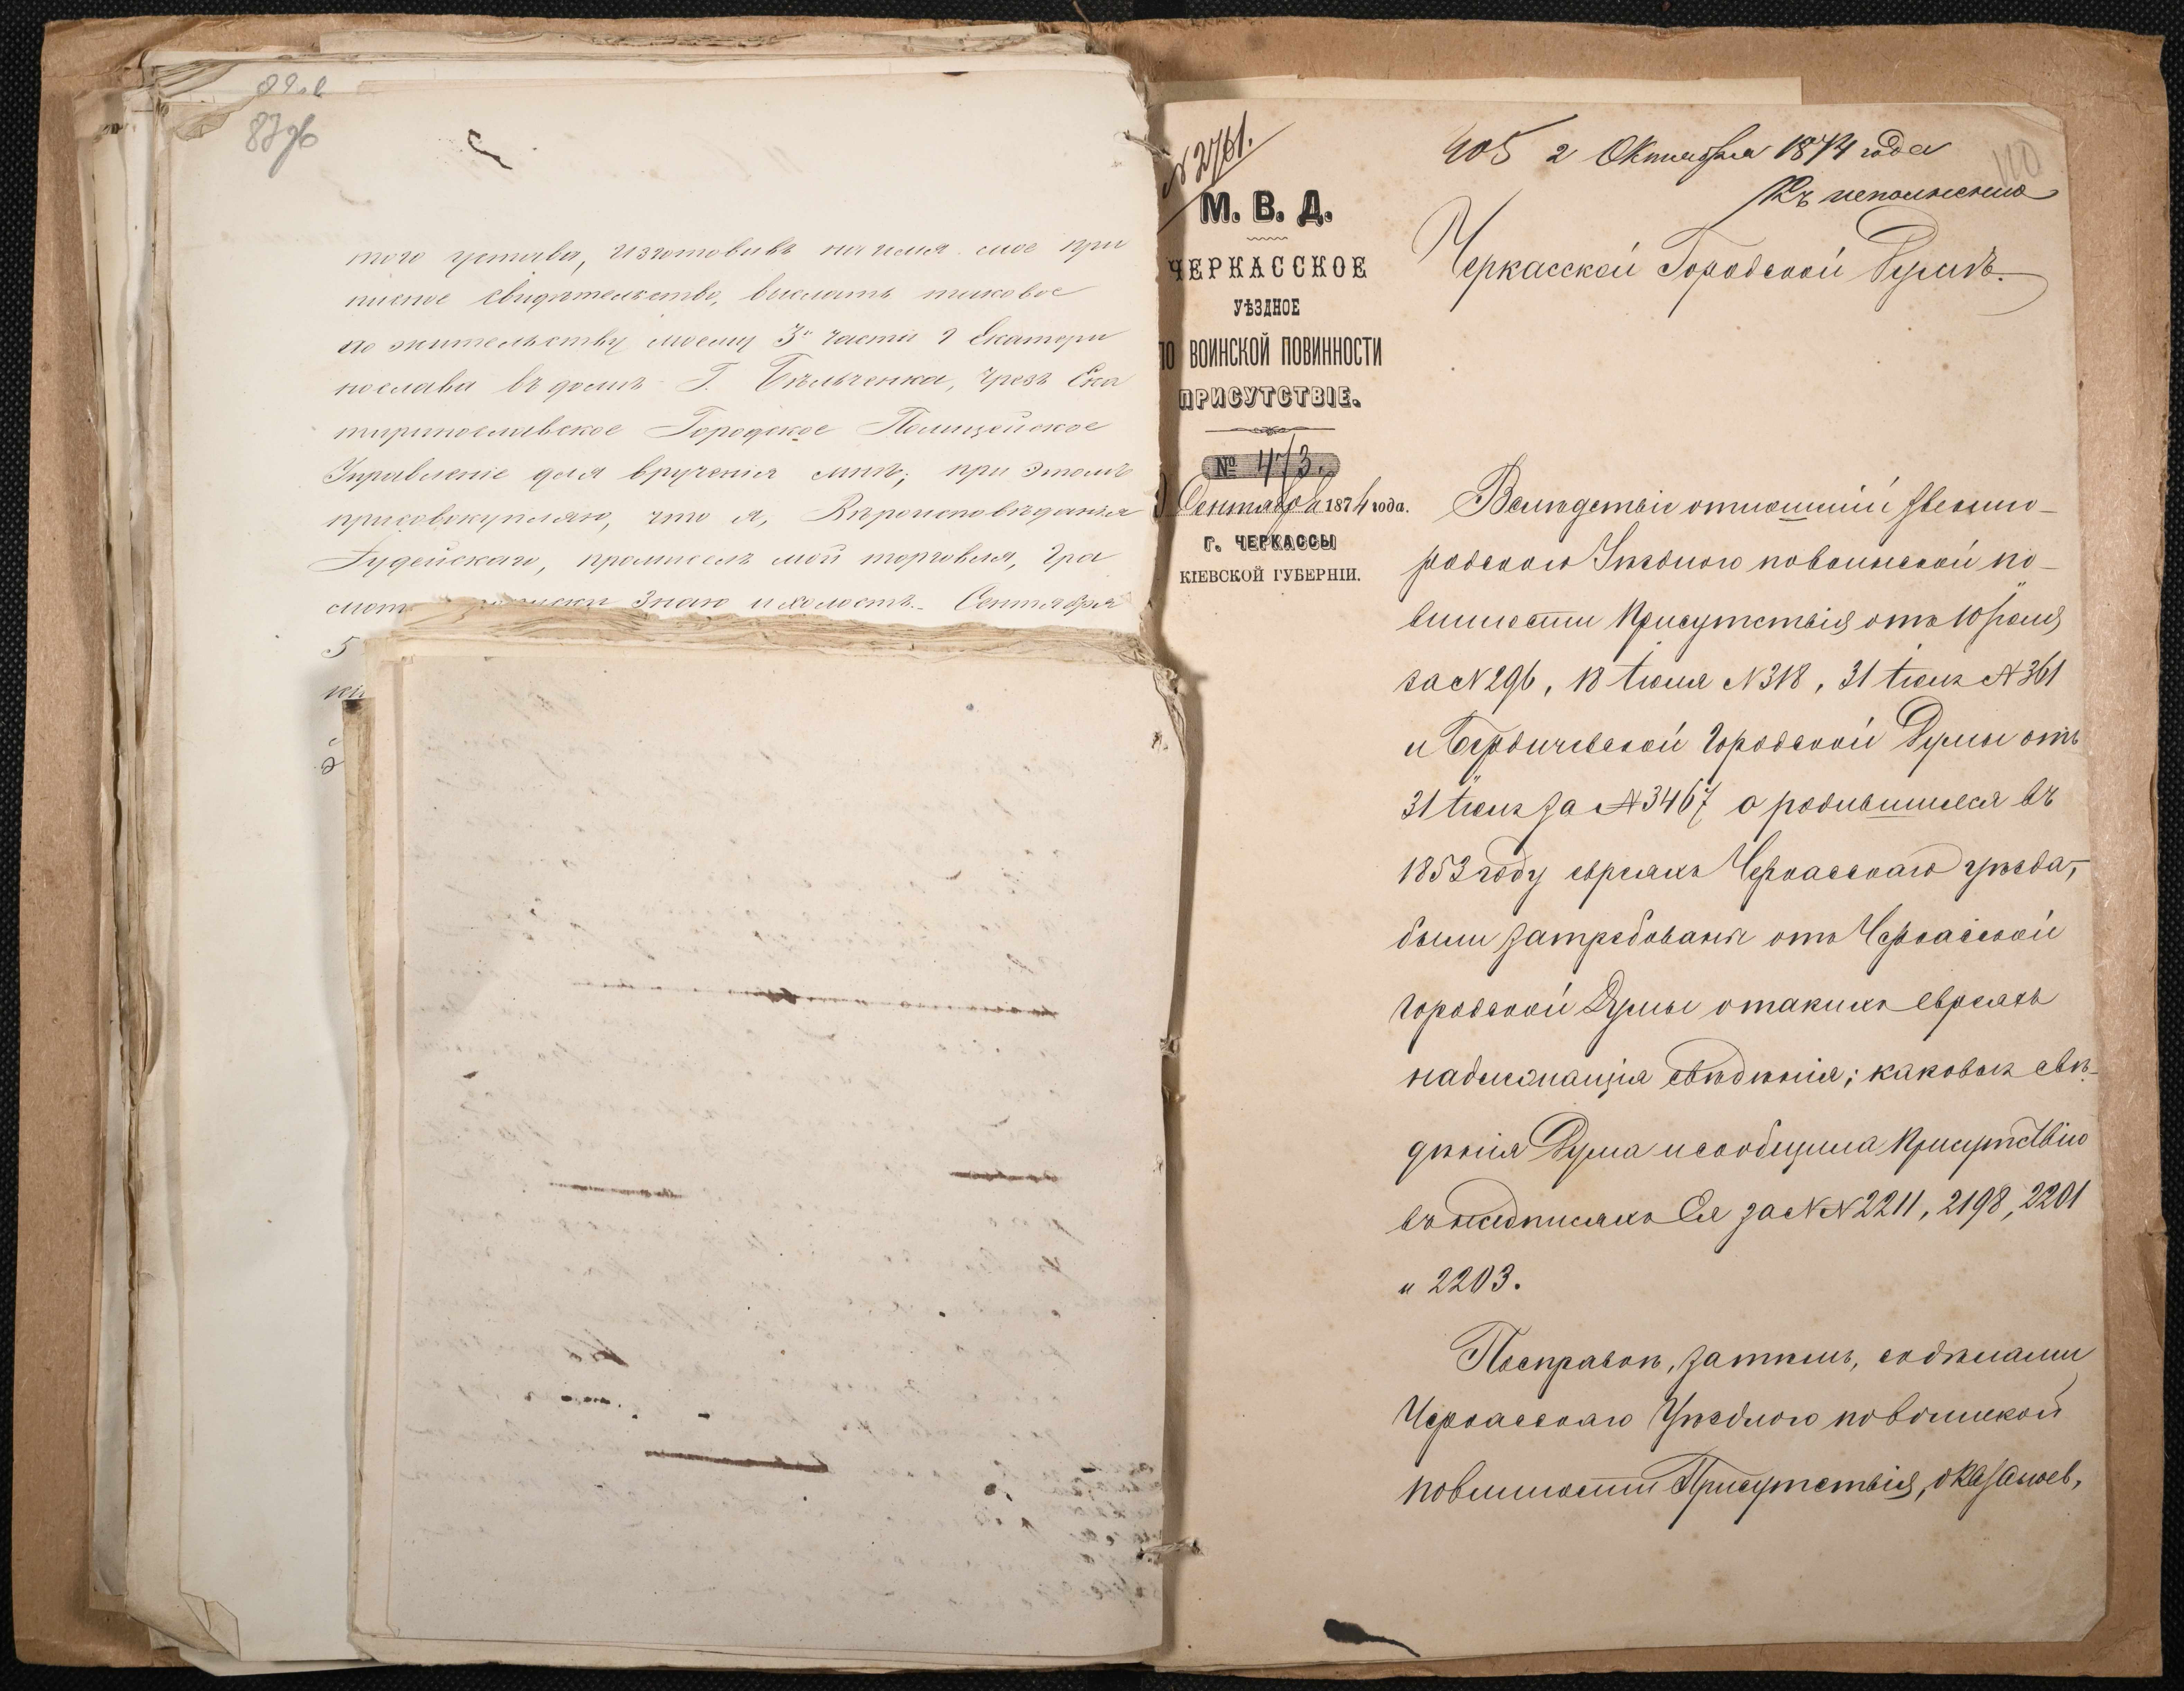 87 об
того устава, изготовивъ на имя мое при
писное свидѣтельство, выслать таковое
по жительству моему 3й части г Екатери
нослава въ домѣ Г. Бѣльченка, чрезъ Ека
тиринославское Городское Полицейское
Управленіе для врученія мнѣ; при этомъ
присовокупляю, что я, Вѣроисповѣданія
Іудейскаго, промыселъ мой торговля, гра
смот знаю и холостъ. Сентября
5
№ 2761.
М. В. Д.
ЧЕРКАССКОЕ
УѢЗДНОЕ
ПО ВОИНСКОЙ ПОВИННОСТИ
ПРИСУТСТВІЕ.
№ 473.
Сентября 1874 года.
Г. ЧЕРКАССЫ
КІЕВСКОЙ ГУБЕРНІИ.
405 2 Октября 1874 года
110
Къ исполненію
Черкасской Городской Думѣ.
Вслѣдствіе отношеній Звенино-
родского Уѣздного по воинской по-
винности Присутствія отъ 10 Іюля
за № 296, 18 Іюля № 318, 31 Іюля № 361
и Бердичевской Городской Думы отъ
31 Іюля за № 3467 о родившихся въ
1853 году евреяхъ Черкасскаго уѣзда,
были затребованы отъ Черкасской
Городской Думы о такихъ Евреяхъ
надлежащія свѣдѣнія; каковыя свѣ-
дѣнія Дума и сообщила Присутствію
въ надписяхъ Ея за №№ 2211, 2198, 2201
и 2203.
По справкѣ, затѣмъ, съ дѣлами
Черкасскаго Уѣздного по воинской
повинности Присутствія, оказалось,